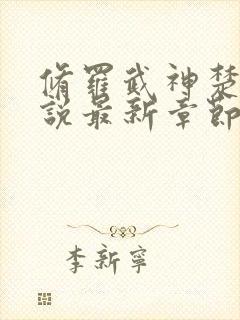 脩羅武神楚
說最新章節
李新寧